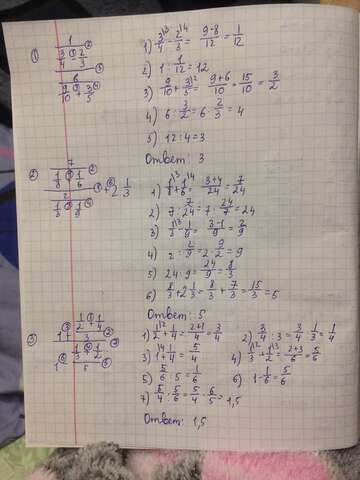 ① 1 / (3/4 - 2/3)
6 / (9/10 + 3/5)
1) 3/4 - 2/3 = 9-8/12 = 1/12
2) 1 : 1/12 = 12
3) 9/10 + 3/5 = 9+6/10 = 15/10 = 3/2
4) 6 : 3/2 = 6 · 2/3 = 4
5) 12 : 4 = 3
Ответ: 3
② 7 / (1/8 + 1/6)
2 / (1/3 - 1/9) + 2 1/3
1) 1/8 + 1/6 = 3+4/24 = 7/24
2) 7 : 7/24 = 7 · 24/7 = 24
3) 1/3 - 1/9 = 3-1/9 = 2/9
4) 2 : 2/9 = 2 · 9/2 = 9
5) 24 : 9 = 24/9 = 8/3
6) 8/3 + 2 1/3 = 8/3 + 7/3 = 15/3 = 5
Ответ: 5
③ 1 + (1/2 + 1/4) / 3
1 - (1/3 + 1/2) / 5
1) 1/2 + 1/4 = 2+1/4 = 3/4
2) 3/4 : 3 = 3/4 · 1/3 = 1/4
3) 1 + 1/4 = 5/4
4) 1/3 + 1/2 = 2+3/6 = 5/6
5) 5/6 : 5 = 1/6
6) 1 - 1/6 = 5/6
7) 5/4 : 5/6 = 5/4 · 6/5 = 1,5
Ответ: 1,5